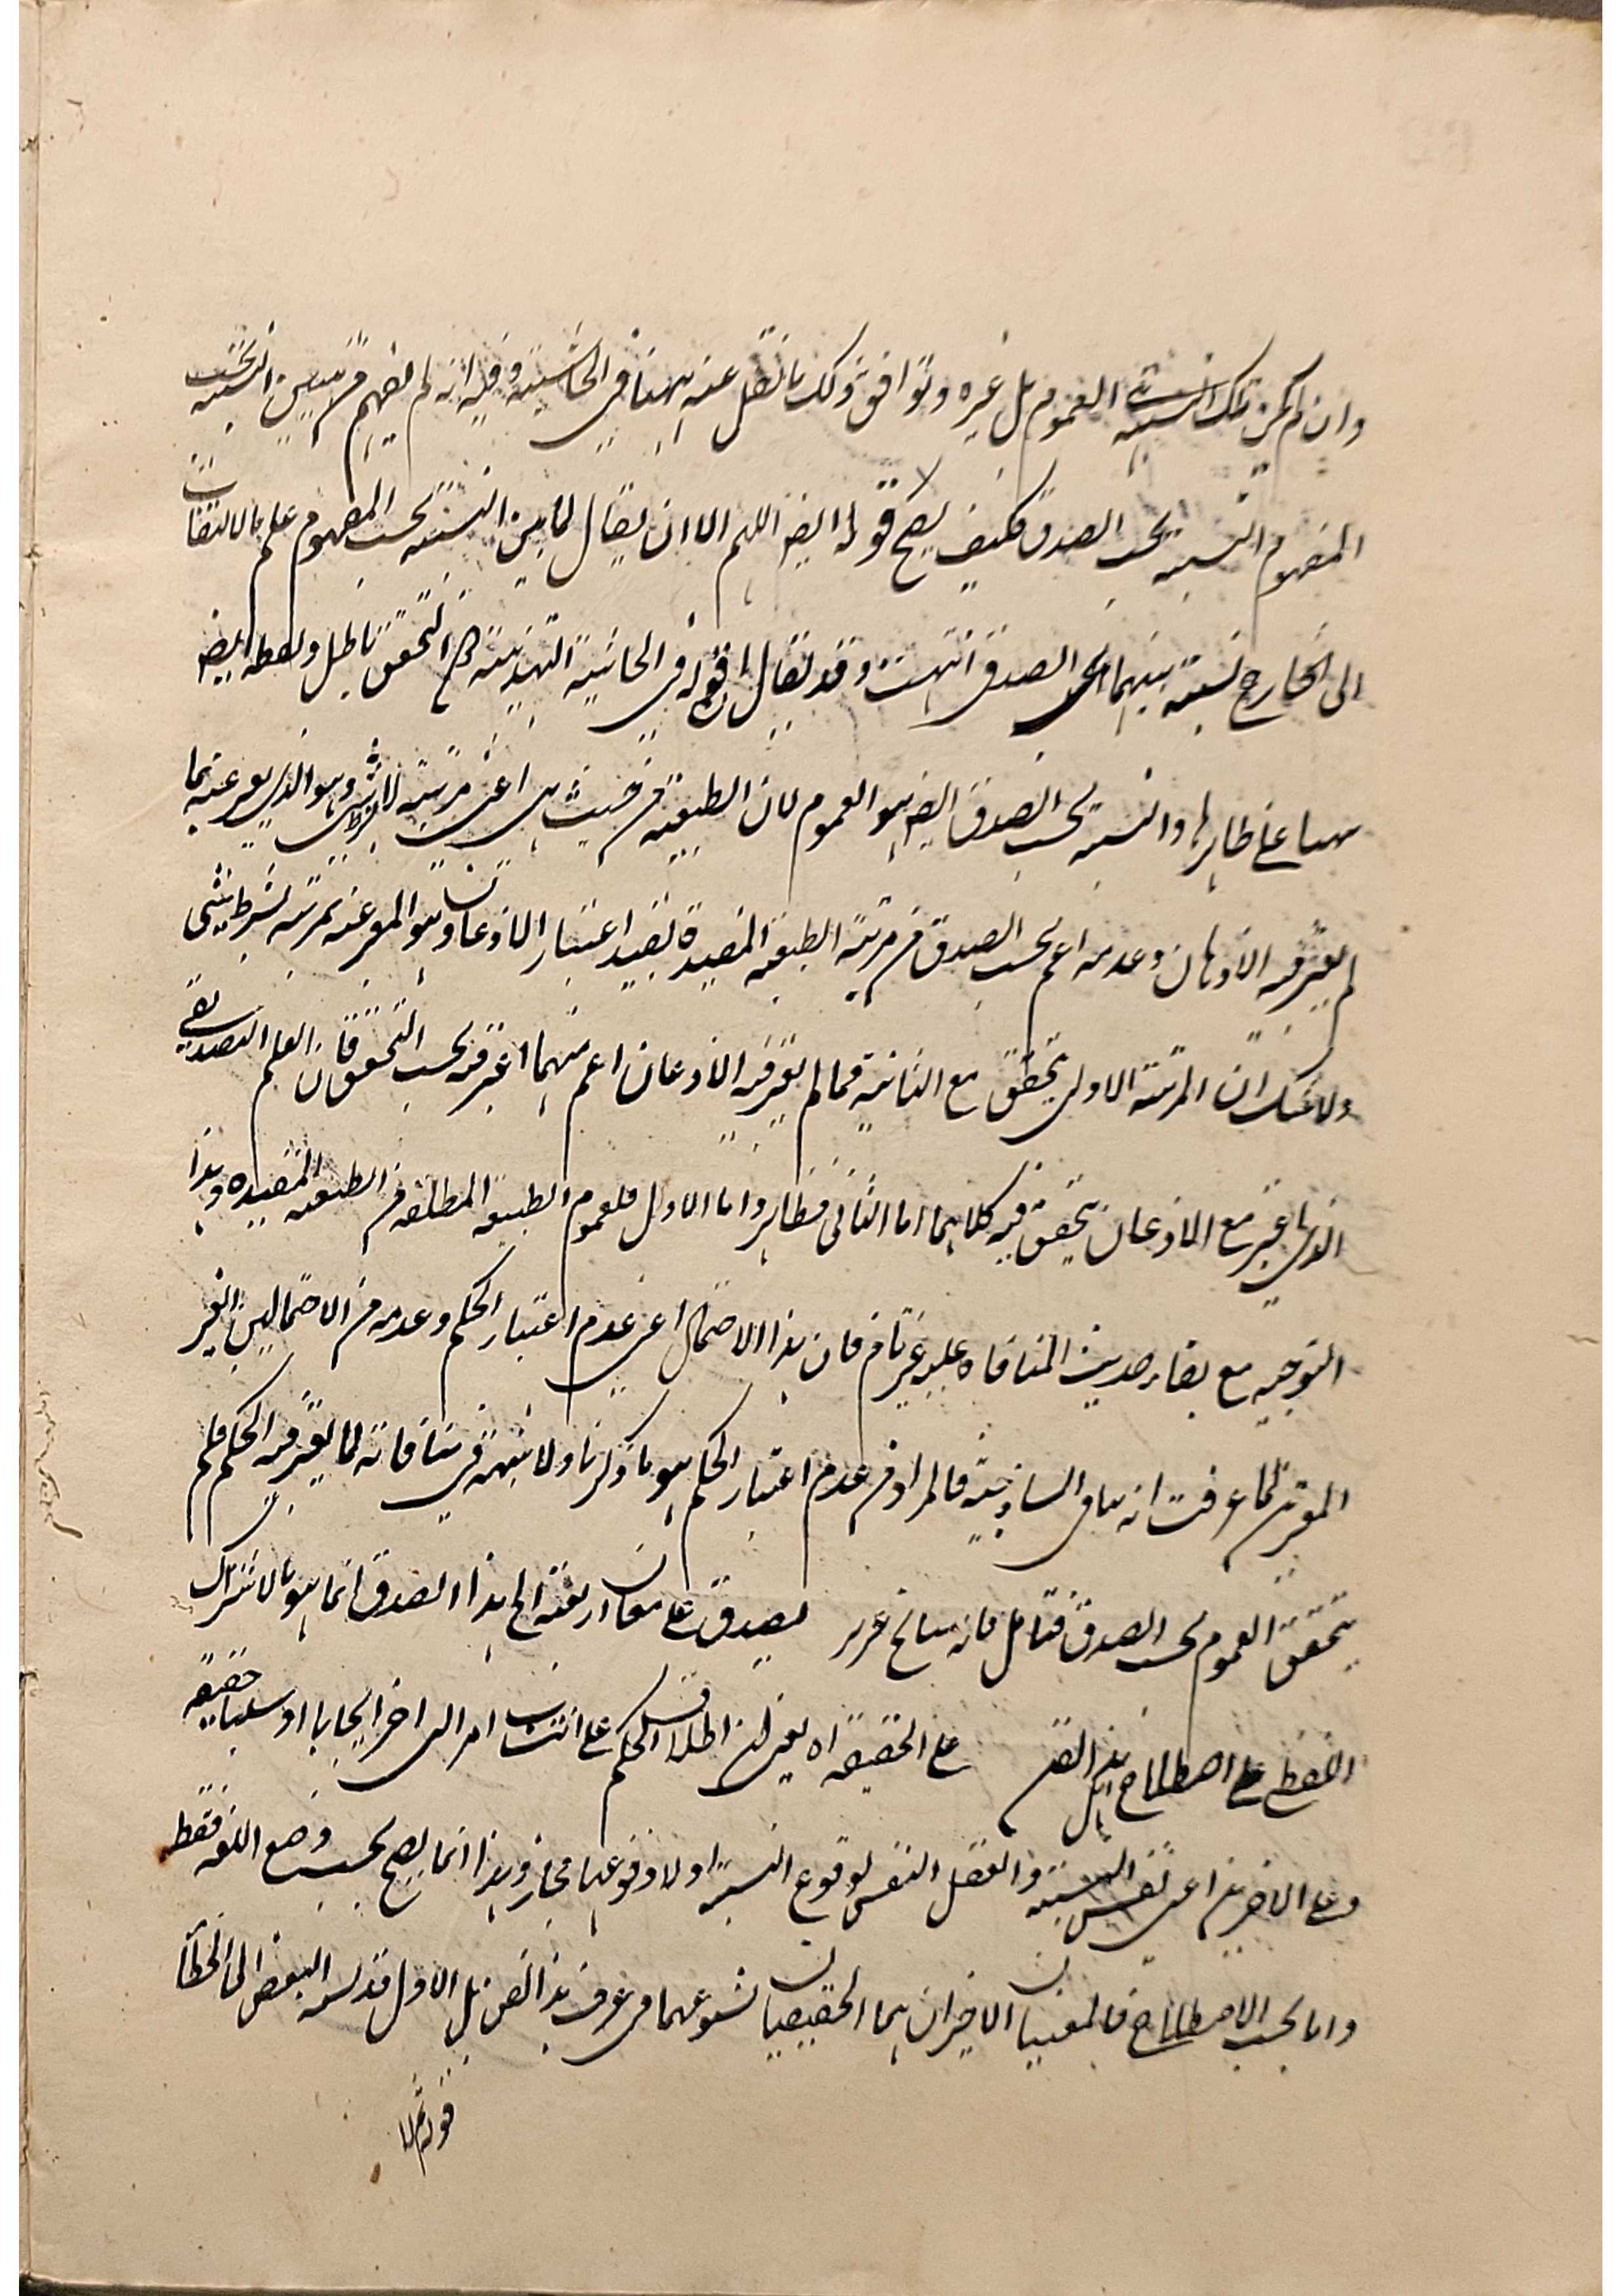 وان لم يكن تلك النسبة العموم بل غيره ويوافق ذلك ما نقل عنه ههنا في الحاشية وفيه انه لم يفهم من تبيين النسبة بحسب
المفهوم النسبة بحسب الصدق فكيف يصح قوله ايضا اللهم الا ان يقال لما بين النسبة بحسب المفهوم علم بالالتفات
الى الخارج نسبة بينهما بحسب الصدق انتهت وقد يقال قوله في الحاشية التهذيبية التحقق باطل ولفظه ايضا
ههنا على ظاهرها والنسبة بحسب الصدق ايضا هو العموم لان الطبيعة من حيث هي اعني مرتبة لا بشرط شيء وهو الذي يعبر عنه بما
لم يعتبر فيه الاذعان وعدمه اعم بحسب الصدق من مرتبة الطبيعة المقيدة بقيد اعتبار الاذعان وهو المعبر عنه بمرتبة بشرط شيء
ولا شك ان المرتبة الاولى يتحقق مع الثانية فما لم يعتبر فيه الاذعان اعم مما اعتبر فيه بحسب التحقق فان العلم التصديقي
الذي اعتبر مع الاذعان يتحقق فيه كلاهما اما الثاني فظاهر واما الاول فلعموم الطبيعة المطلقة من الطبيعة المقيدة وهذا
التوجيه مع بقاء حديث المنافاة عليه غير تام فان هذا الاحتمال اعني عدم اعتبار الحكم وعدمه من الاحتمالين الغير
المعتبرين لما عرفت انه ينافي الساذجية فالمراد من عدم اعتبار الحكم هو ما ذكرنا ولا شبهة في منافاته لما يعتبر فيه الحكم فلم
يتحقق العموم بحسب الصدق فتامل فانه سانح عزيز يصدق على معان اربعة الخ هذا الصدق انما هو بالاشتراك
اللفظي على اصطلاح هذا الفن على الحقيقة اه يعني ان اطلاق الحكم على انتساب امر الى اخر ايجابا او سلبا حقيقة
وعلى الاخرين اعني نفس النسبة والعقل النفس لوقوع النسبة او لا وقوعها مجاز وهذا انما يصح بحسب وضع اللغة فقط
واما بحسب الاصطلاح فالمعنيان الاخيران هما الحقيقيان لشيوعهما في عرف هذا الفن بل الاول قد نسبه البعض الى الخطأ